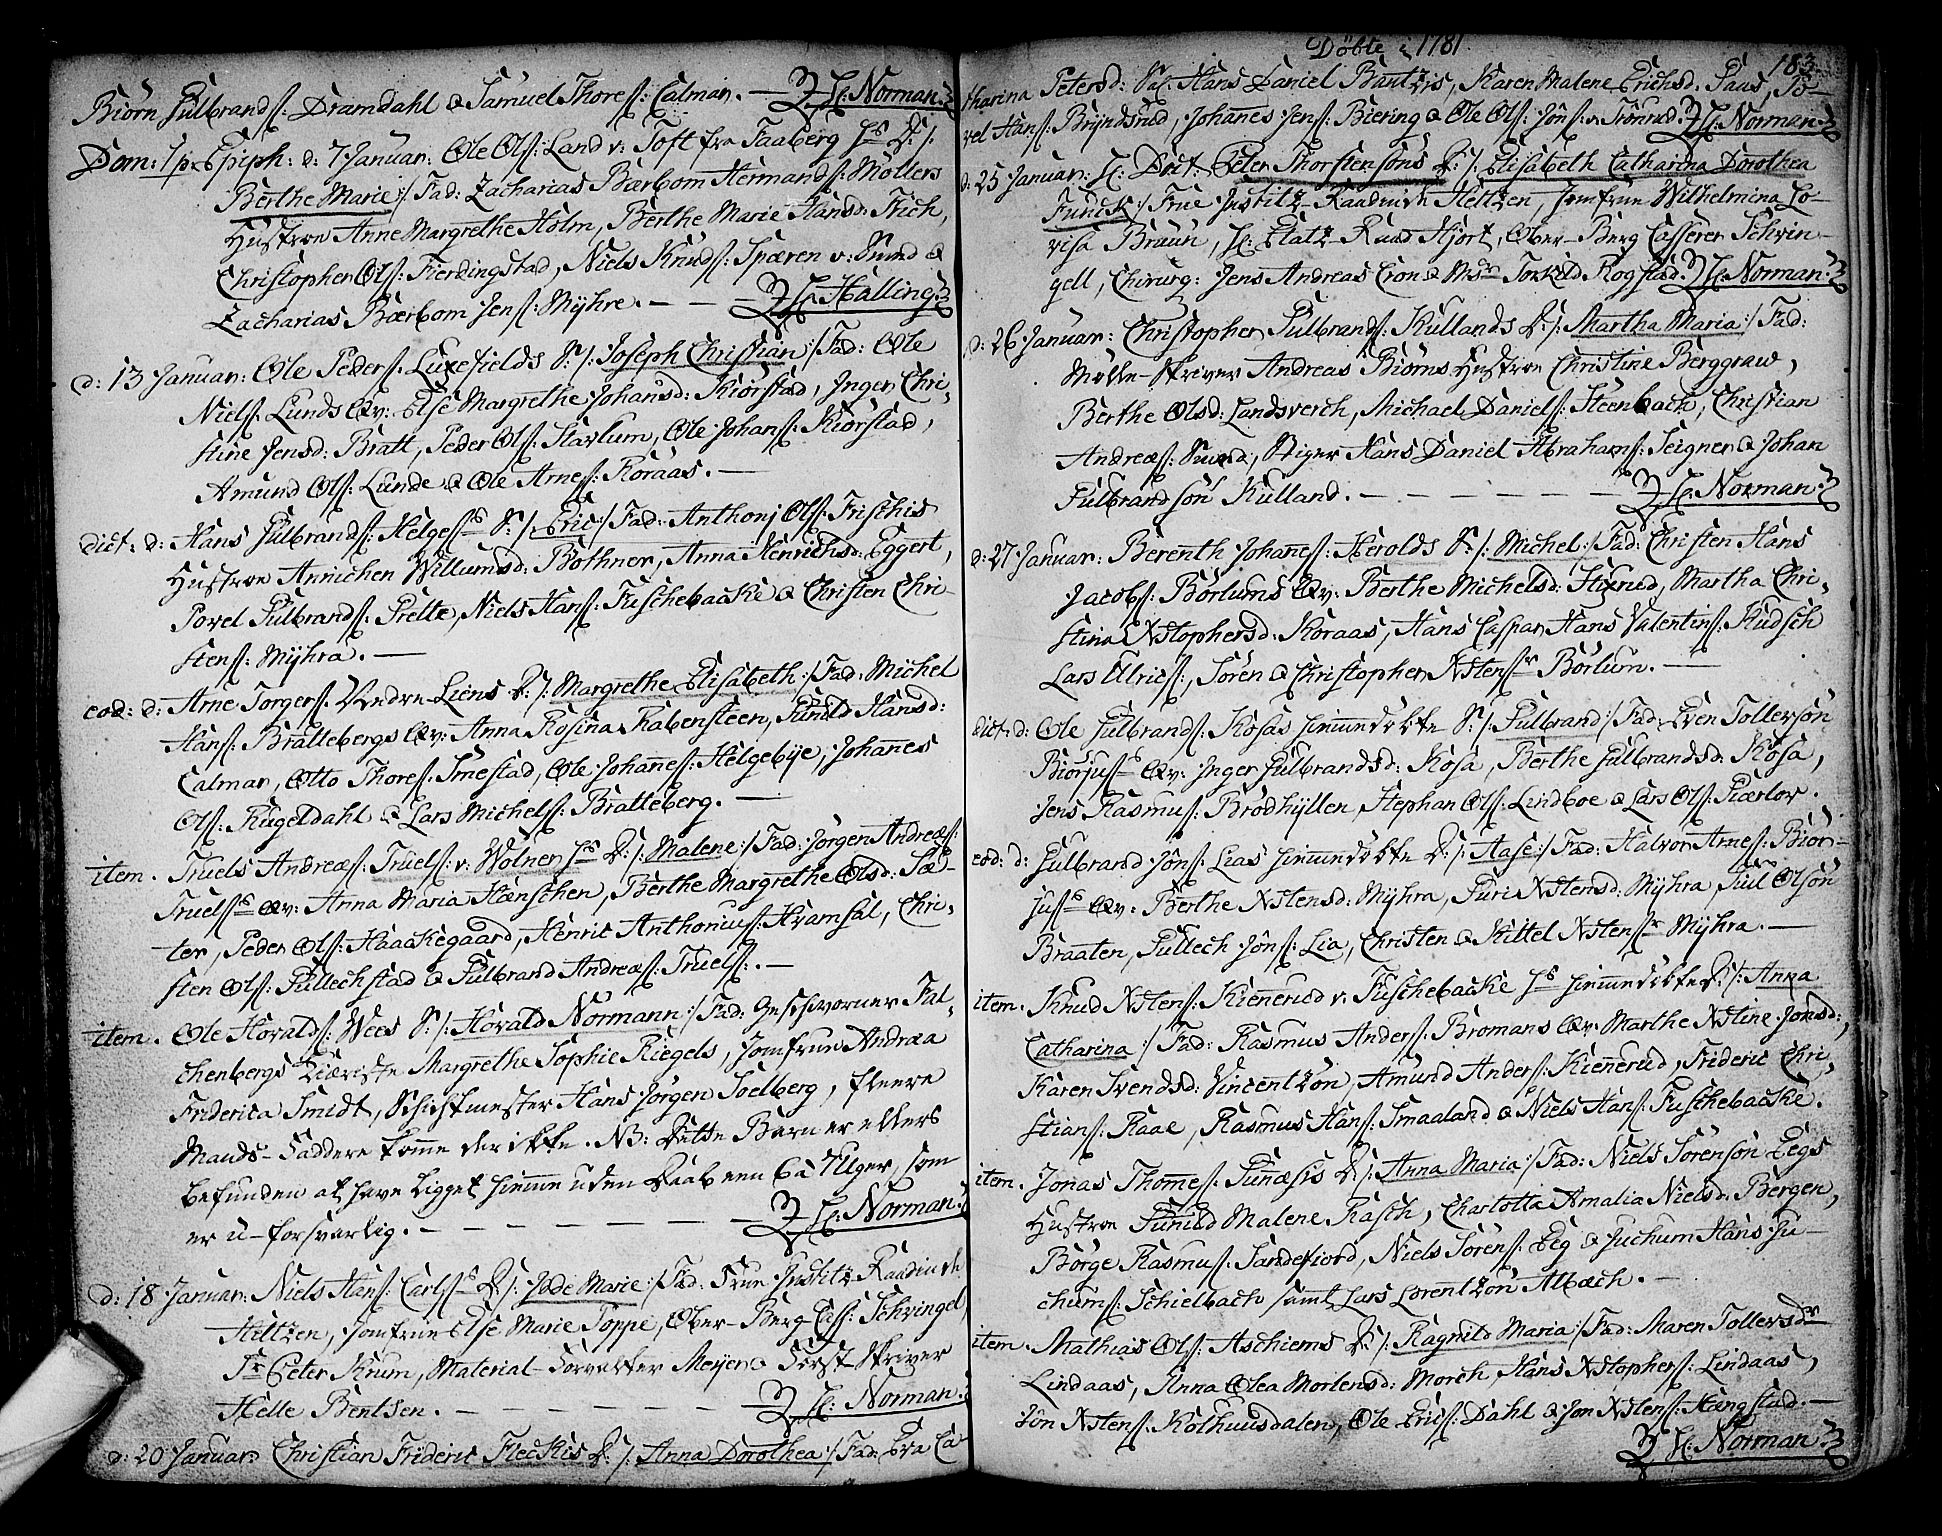 Biörn Gulbrands: Dramdahl & Samuel Thores: Calman. — H: Norman.
Dom: 1 p. Epiph: d: 7 Januar: Ole Ols: Land v: Toft fra Faaberg Hs D: /:
Berthe Marie :/ Fad: Zacharias Bærbom Hermands: Möllers
Hustroe Anne Margrethe Holm, Berthe Marie Hansd: Frich,
Christopher Ols: Fierdingstad, Niels Knuds: Spæren v: Sund &
Zacharias Bærbom Jens: Mÿhre. — H: Halling.
d: 13 Januar: Ole Peders: Luxefields S: /: Joseph Christian :/ Fad: Ole
Niels: Lunds Qv: Else Margrethe Johansd: Kiörstad, Inger Chri-
stine Jensd: Bratt, Peder Ols: Stavlum, Ole Johans: Kiörstad,
Amund Ols: Lunde & Ole Arnes: Koraas. —
dict: d: Hans Gulbrands: Helgess S: /: Eric :/ Fad: Anthonj Ols: Frischis
Hustroe Annichen Willumsd: Bothner, Anna Henrichsd: Eggert,
Povel Gulbrands: Prelte, Niels Hans: Fuschebacke & Christen Chri-
stens: Mÿhra. —
eod: d: Arne Torgers: Vendre-Liens D: /: Margrethe Elisabeth :/ Fad: Michel
Hans: Brattebergs Qv: Anna Rosina Rabensteen, Gunild Hansd:
Calman, Otto Thores: Smestad, Ole Johannes: Helgebÿe, Johannes
Ols: Kugeldahl & Lars Michels: Bratteberg. —
item. Truels Andreæs: Truels: v: Wolner Hs D: /: Malene :/ Fad: Jörgen Andreæs:
Truelss Qv: Anna Maria Hænschen, Berthe Margrethe Olsd: Sæ-
ter, Peder Ols: Haakegaard, Henric Anthonius: Kvamsal, Chri-
sten Ols: Gullechstad & Gulbrand Andreæs: Truels: —
item. Ole Hovalds: Wees S: /: Hovald Normann :/ Fad: Geschworner Fal-
chenbergs Kiæriste Margrethe Sophie Riegels, Jomfrue Andrea
Friderica Smidt, Schichtmester Hans Jörgen Soelberg, fleere
Mands-Faddere komme der ikke. NB: Dette Barn er ellers
befunden at have ligget hiemme uden Daab een 6 à 7 Uger, som
er u-forsvarlig. — H: Norman.
d: 18 Januar: Niels Hans: Carlss D: /: Jode Marie :/ Fad: Frue Justitz-Raadinde
Heltzen, Jomfrue Else Marie Poppe, Ober-Berg Cass: Schvingel,
Sr Peter Knum, Material-Forvalter Meÿer & Forst-Skriver
Helle Bentsen. — H: Norman.
d: 20 Januar: Christian Frideric Fleckis D: /: Anna Dorothea :/ Fad: Eva Ca-
Döbte i 1781
183
tharina Petersd: Sal: Hans Daniel Bantzis, Karen Malene Erichsd: Saas, Po-
vel Hans: Brÿndsrud, Johanes Jens: Biering & Ole Ols: Jöns: v: Tronrud. H: Norman.
d: 25 Januar: H: Doct: Peter Thorstensöns D: /: Elisabeth Catharina Dorothea
Funck :/ Frue Justitz-Raadinde Heltzen, Jomfrue Wilhelmina Lo-
visa Braun, H: Etatz-Raad Hjort, Ober-Berg Casserer Schvin-
gell, Chirurg: Jens Andreas Cron & Msr Torkild Rogstad. H: Norman.
d: 26 Januar: Christopher Gulbrands: Kullands D: /: Martha Maria :/ Fad:
Mölle-Skriver Andreas Biörns Hustroe Christine Berggraw,
Berthe Olsd: Landsverch, Michael Daniels: Steenbach, Christian
Andreæs: Sund, Stiger Hans Daniel Abrahams: Seigner & Johan
Gulbrandsön Kulland. — H: Norman.
d: 27 Januar: Berenth Johanes: Herolds S: /: Michel :/ Fad: Christen Hans
Jacobs: Börlums Qv: Berthe Michelsd: Stuerud, Martha Chri-
stina Xstophersd: Koraas, Hans Caspar Hans Valentins: Kudsch
Lars Ulrics:, Sören & Christopher Xstenssr Börlum. —
dict: d: Ole Gulbrands: Kosas hiemmedöbte S: /: Gulbrand :/ Fad: Even Tollersön
Biörjuss Qv: Inger Gulbrandsd: Kosa, Berthe Gulbrandsd: Kosa,
Jens Rasmus: Brödhÿllen, Stephan Ols: Lindboe & Lars Ols: Kiærlov.
eod: d: Gulbrand Jöns: Lias hiemmedöbte D: /: Aase :/ Fad: Halvor Arnes: Biör-
juss Qv: Berthe Xstensd: Mÿhra, Guri Xstensd: Mÿhra, Juul Olsön
Braaten, Gullech Jöns: Lia, Christen & Kittel Xstenssr Mÿhra. —
item. Knud Xstens: Kiennerud v: Fuschebacke Hs hiemmedöbte D: /: Anna
Catharina :/ Fad: Rasmus Anders: Bromans Qv: Marthe Xstine Jonsd:,
Karen Svendsd: Vincentzön, Amund Anders: Kiennerud, Frideric Chri-
stians: Raae, Rasmus Hans: Smaaland & Niels Hans: Fuschebacke.
item. Jonas Thomes: Gunæsis D: /: Anna Maria :/ Fad: Niels Sörensön Eegs
Hustroe Gunild Malene Rasch, Charlotta Amalia Nielsd: Bergen,
Börge Rasmus: Sandefiord, Niels Sörens: Eeg & Juchum Hans Ju-
chums: Schielbach samt Lars Lorentzön Albæch. —
item. Mathias Ols: Aschiems D: /: Ragnild Maria :/ Fad: Maren Tollersdr
Lindaas, Anna Olea Mortensd: Morch, Hans Xstophers: Lindaas,
Jön Xstens: Kolhuusdalen, Ole Erics: Dahl & Jon Xstens: Hængstad. —
H: Norman.